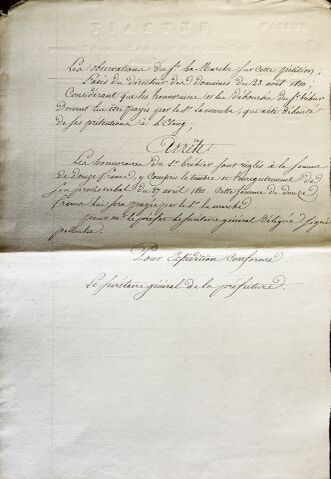 Les observations du Sr La Marche sur cette pétition,
L'avis du directeur des Domaines du 23 août 1810,
Considérant que les honoraires et les déboursés du Sr Trebier
doivent lui être payés par le Sr Lamarche, qui a été débouté
de ses prétentions à l'Etang;
Arrête:
Les honoraires du Sr Trébier sont réglés à la somme
de douze francs, y compris le timbre et l'enregistrement de
son procès verbal du 27 avril 1810. Cette somme de douze
francs lui sera payée par le Sr la marche
pour M. le préfet le secrétaire général délégué signé
Pour Expédition conforme
Le secrétaire général de la préfecture.